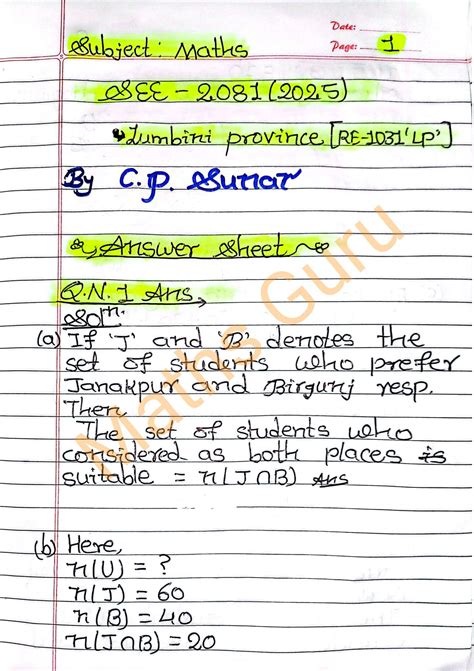 Date:
Page: 1
Subject: Maths
SEE - 2081 (2025)
Lumbini province [RE-1031'LP']
By C.P. Sunar
Answer sheet
Q.N. 1 Ans
Solⁿ.
(a) If 'J' and 'B' denotes the
set of students who prefer
Janakpur and Birgunj resp.
Then
The set of students who
considered as both places is
suitable = n(J∩B) Ans
(b) Here,
n(U) = ?
n(J) = 60
n(B) = 40
n(J∩B) = 20
Maths Guru